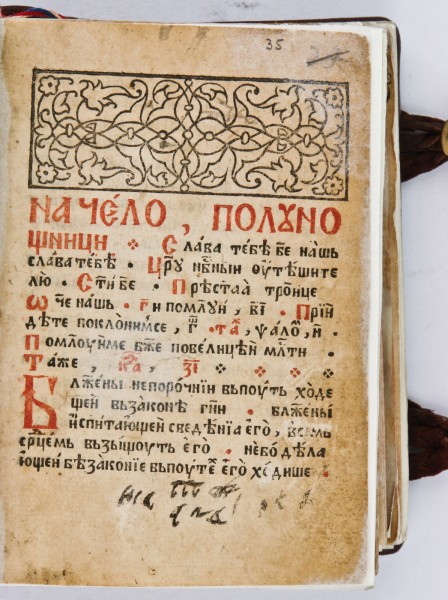 35
НАЧЕ́ЛО , ПОЛУНО
ЩНИЦИ ⁘ Сла́ва тебѣ̀ бж҃е на́шь
сла́ва тебѣ̀ · Цр҃ꙋ нб҃ныи ꙋ҆тѣшите
лю̀ · Ст҃и бж҃е · Прѣста́а тро́ице
Ѿче на́шь · гп҃и помлꙋ́и , в҃і · Прїи
дѣ́те поклони́мсе , г҃ · та̑ , ѱало́м , н҃ ·
Помлоуи́ме бж҃е по вели́цѣи мл҃ти ·
Та́же , , з҃і ⁘ ⁘ ⁘ ⁘
Блже́ны непоро́чнїи въпоуть ходе
щеи въ зако́нѣ гн҃и · блже́ны
испита́ющеи сведе́нїа е҆го̀ , всѣмь
ср҃цемь възы́щоуть е҆го̀ · небо̀ дѣ́ла
ющеи безако́нїе въпоутех е҆го̀ хо́дише ·